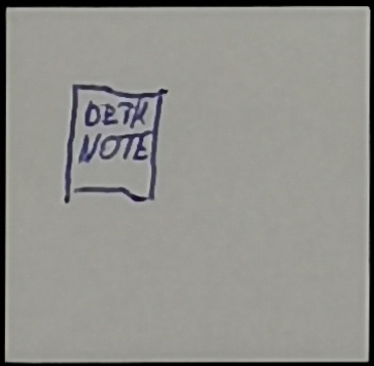 DETH
NOTE